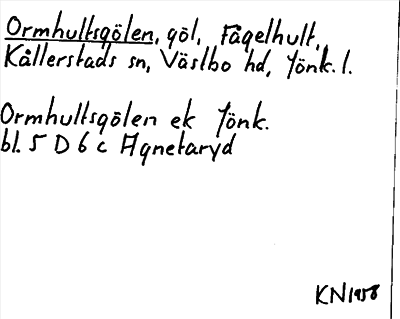 Ormhultsgölen, göl, Fågelhult,
Kållerstads sn, Västbo hd, Jönk. l.
Ormhultsgölen ek Jönk.
bl. 5 D 6 c Agnetaryd
KN 1958